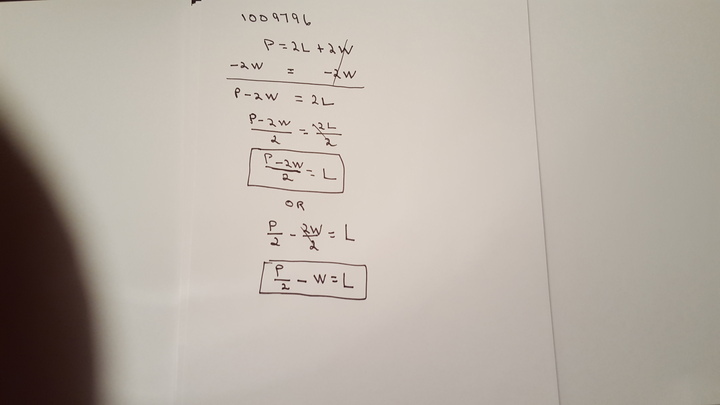 1009796
P = 2L + 2W
-2W = -2W
P-2W = 2L
P-2W/2 = 2L/2
P-2W/2 = L
OR
P/2 - 2W/2 = L
P/2 - W = L